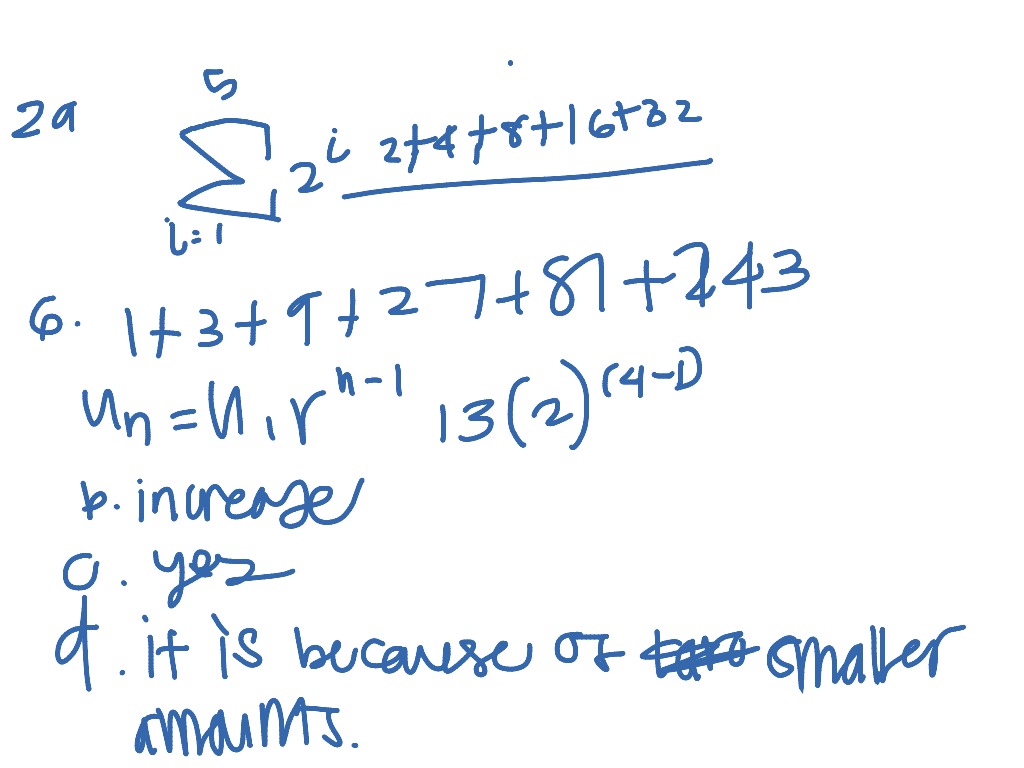 2a \sum_{i=1}^{5} 2^i 2+4+8+16+32
6. 1+3+9+27+81+243
u_n = u_1 r^{n-1} 13(2)^{(4-1)}
b. increase
c. yes
d. it is because of smaller
amounts.